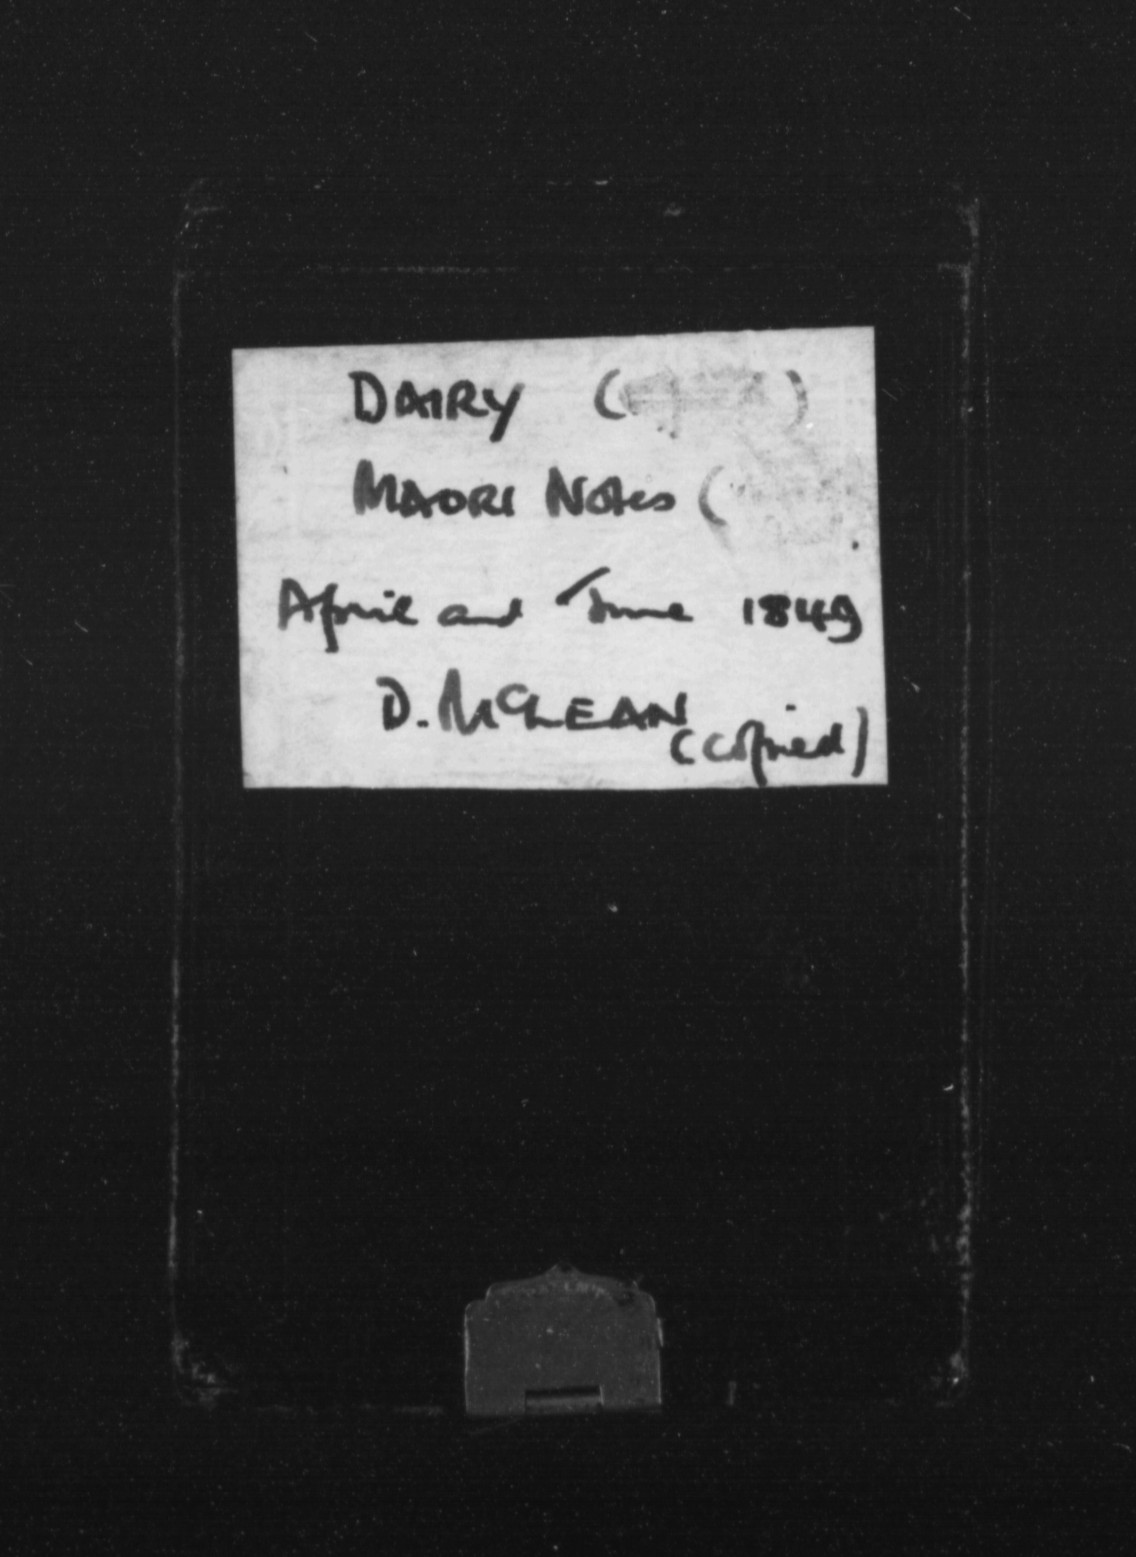 DAIRY ( )
MAORI Notes (
April and June 1849
D. McLEAN
(copied)